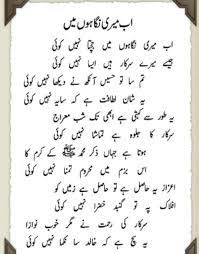 اب میری نگاہوں میں
اب میری نگاہوں میں جچتا نہیں کوئی
جیسے میرے سرکار ہیں ایسا نہیں کوئی
تم سا تو حسیں آنکھ نے دیکھا نہیں کوئی
یہ شان لطافت ہے کہ سایہ نہیں کوئی
یہ طور سے کہتی ہے ابھی تک شب معراج
سرکار کا جلوہ ہے تماشا نہیں کوئی
ہوتا ہے جہاں ذکر محمد ﷺ کے کرم کا
اس بزم میں محروم تمنا نہیں کوئی
اعزاز یہ حاصل ہے تو حاصل ہے زمیں کو
افلاک پہ تو گنبد خضرا نہیں کوئی
سرکار کی رحمت نے مگر خوب نوازا
یہ سچ ہے کہ خالد سا نکما نہیں کوئی